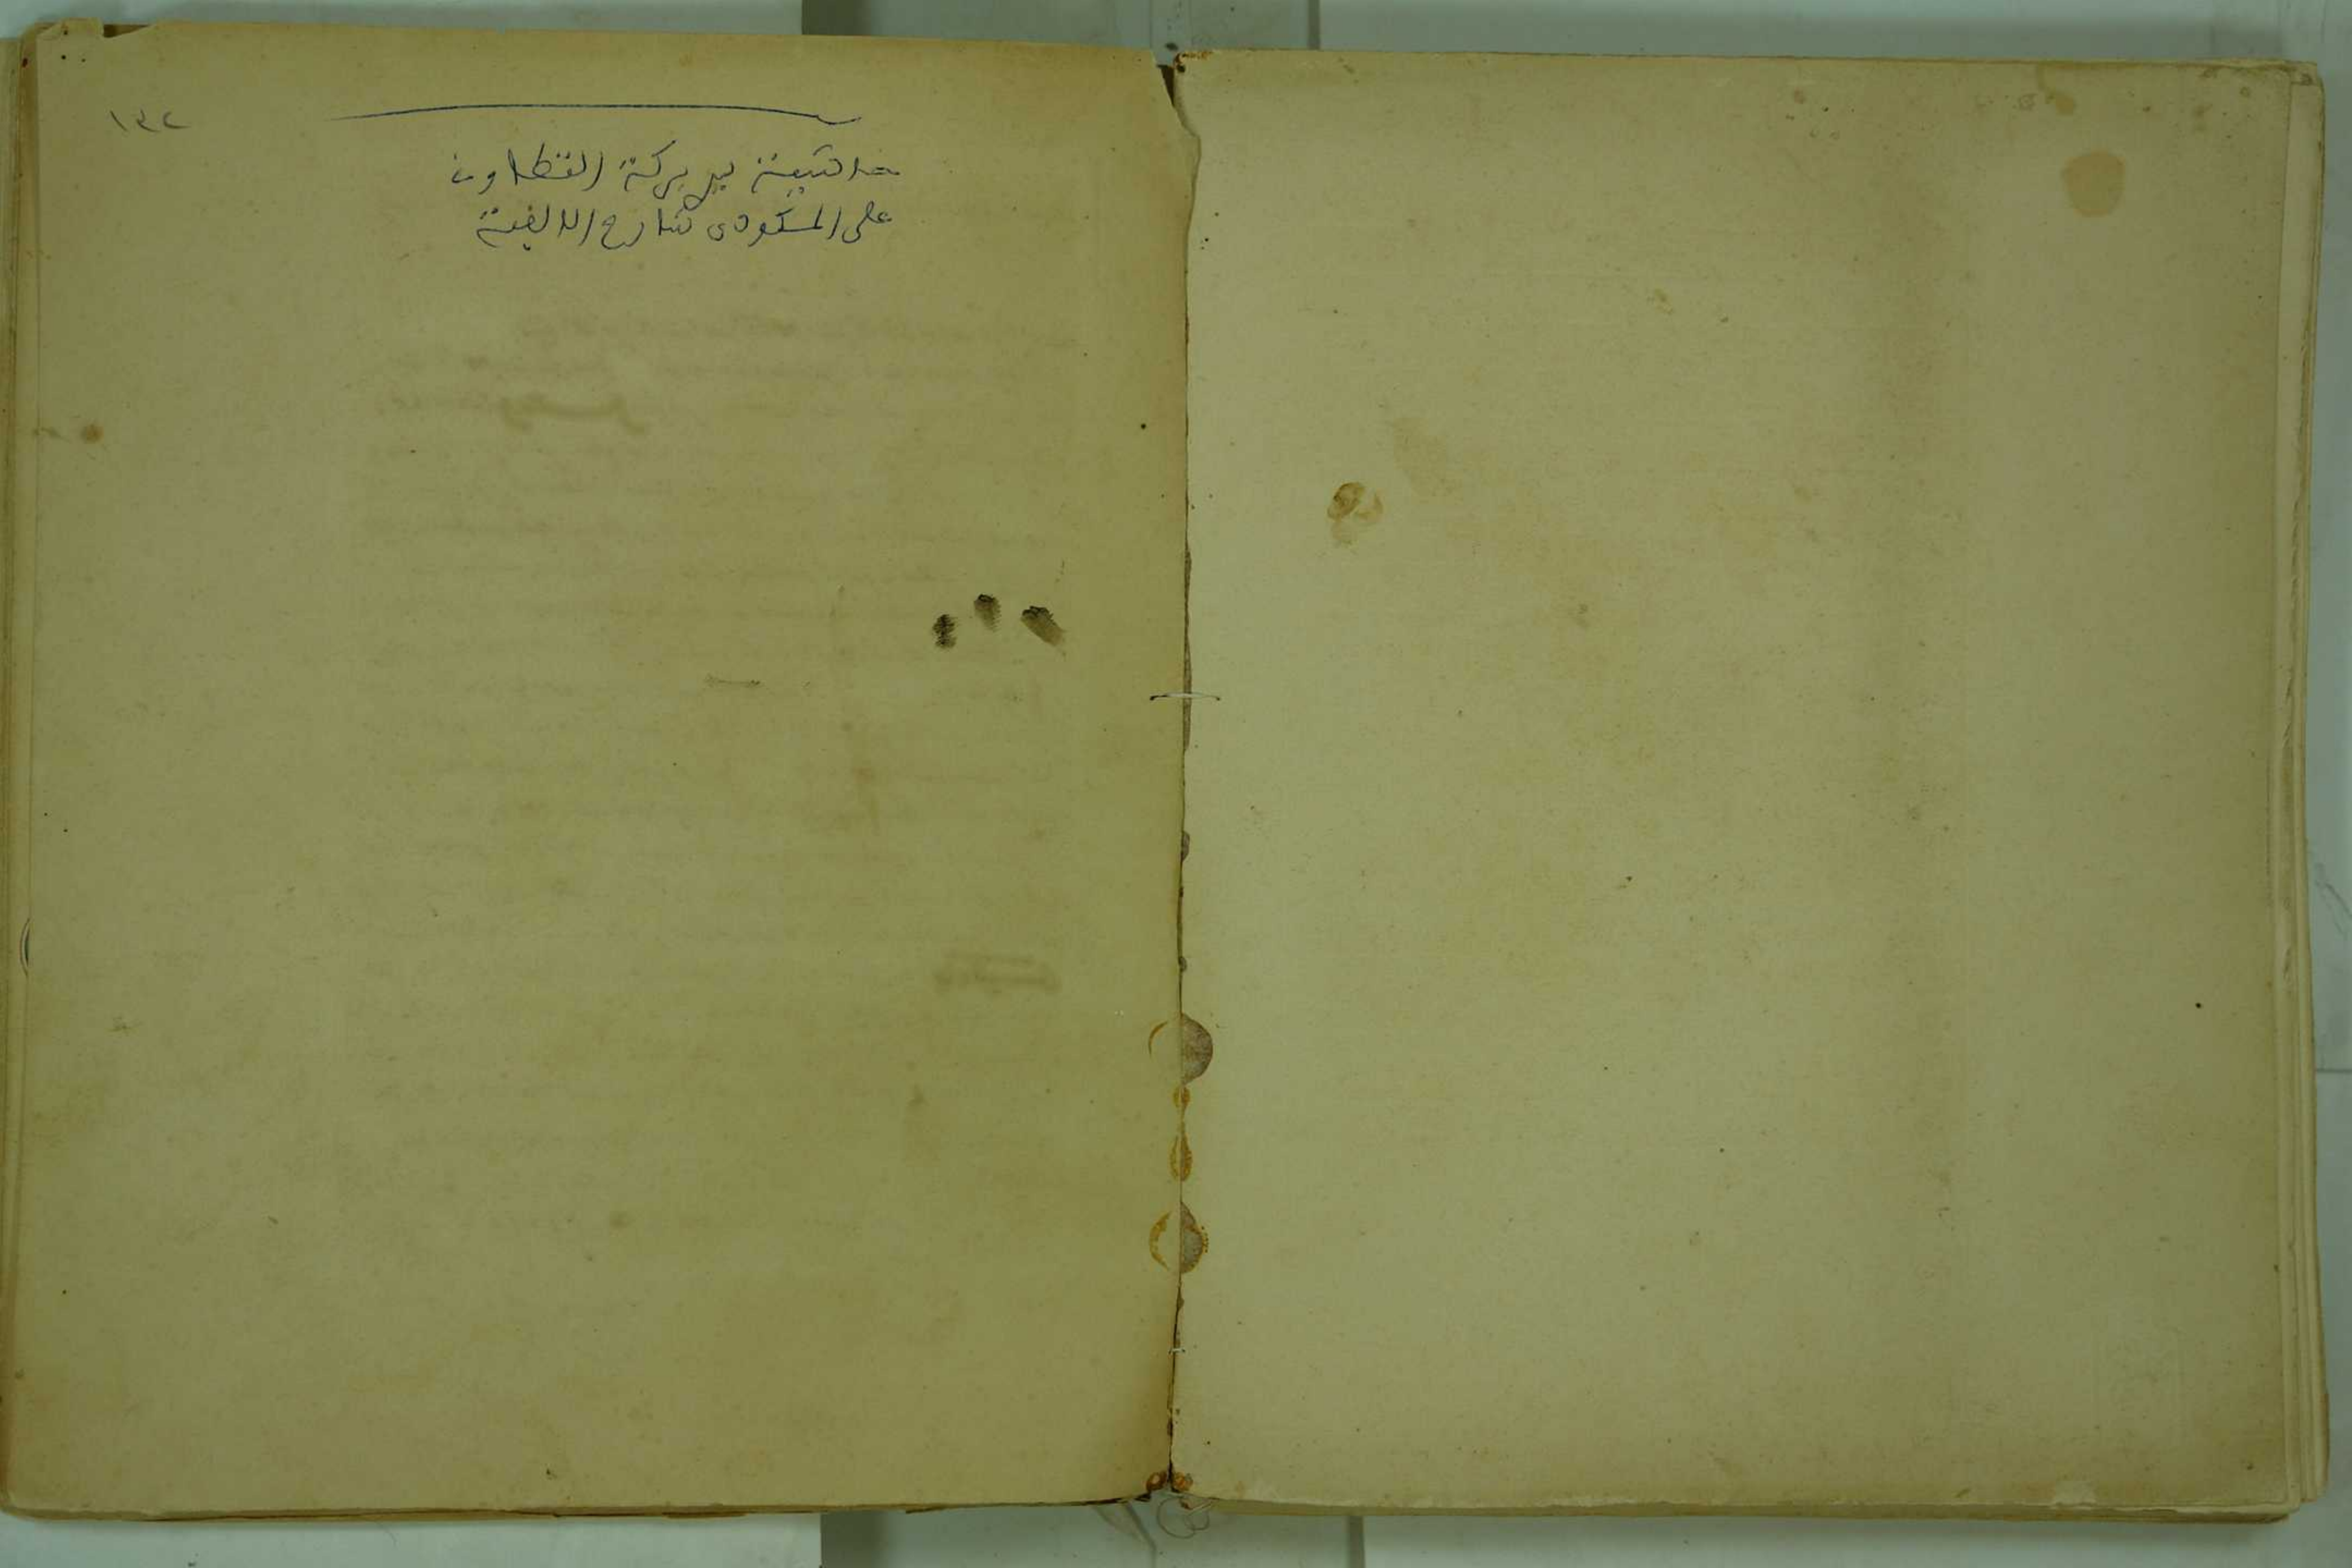 ١٣٢
حاشية بن بركة التطاون
على المكودى شارح الالفية